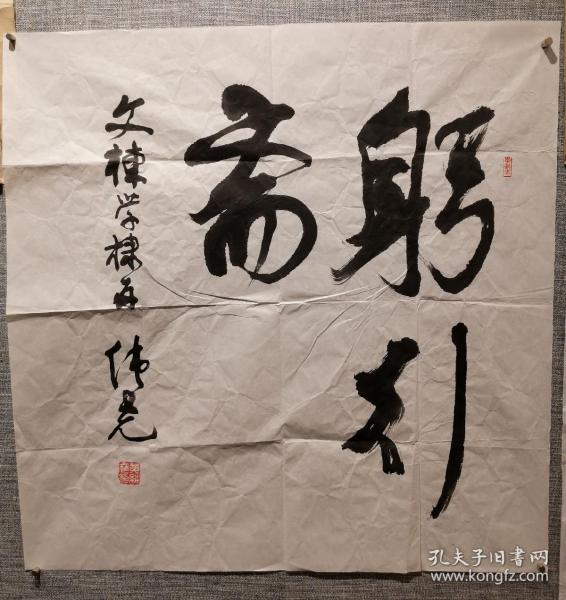 躬行
斋
文栋学棣正 伟光
孔夫子旧书网
www.kongfz.com